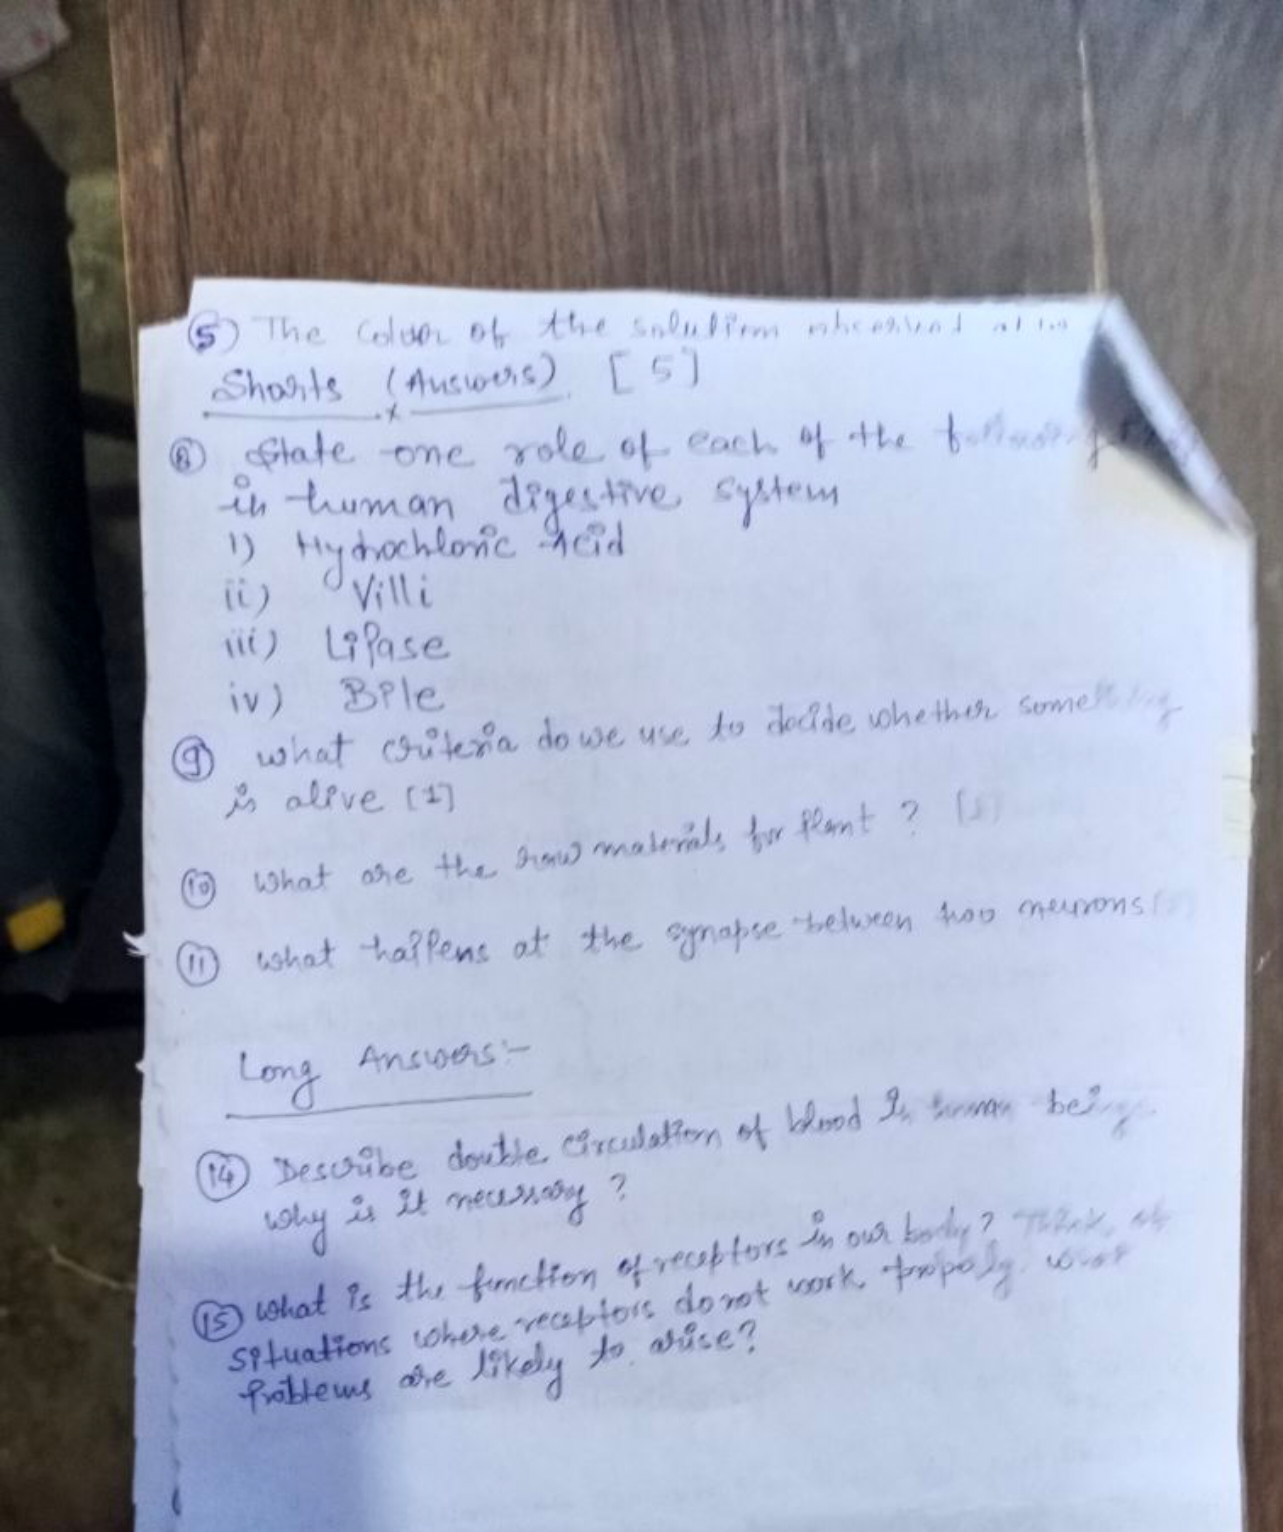 5) The Colour of the solution observed
Shorts (Answers) [5]
8 State one role of each of the following
in human digestive system
i) Hydrochloric Acid
ii) Villi
iii) Lipase
iv) Bile
9 what criteria do we use to decide whether something
is alive [1]
10 What are the raw materials for Plant ?
11 what happens at the synapse between two neurons
Long Answers:-
14 Describe double circulation of blood In human beings
why is it necessary ?
15 What is the function of receptors in our body? Think of
situations where receptors do not work properly. what
Problems are likely to arise?